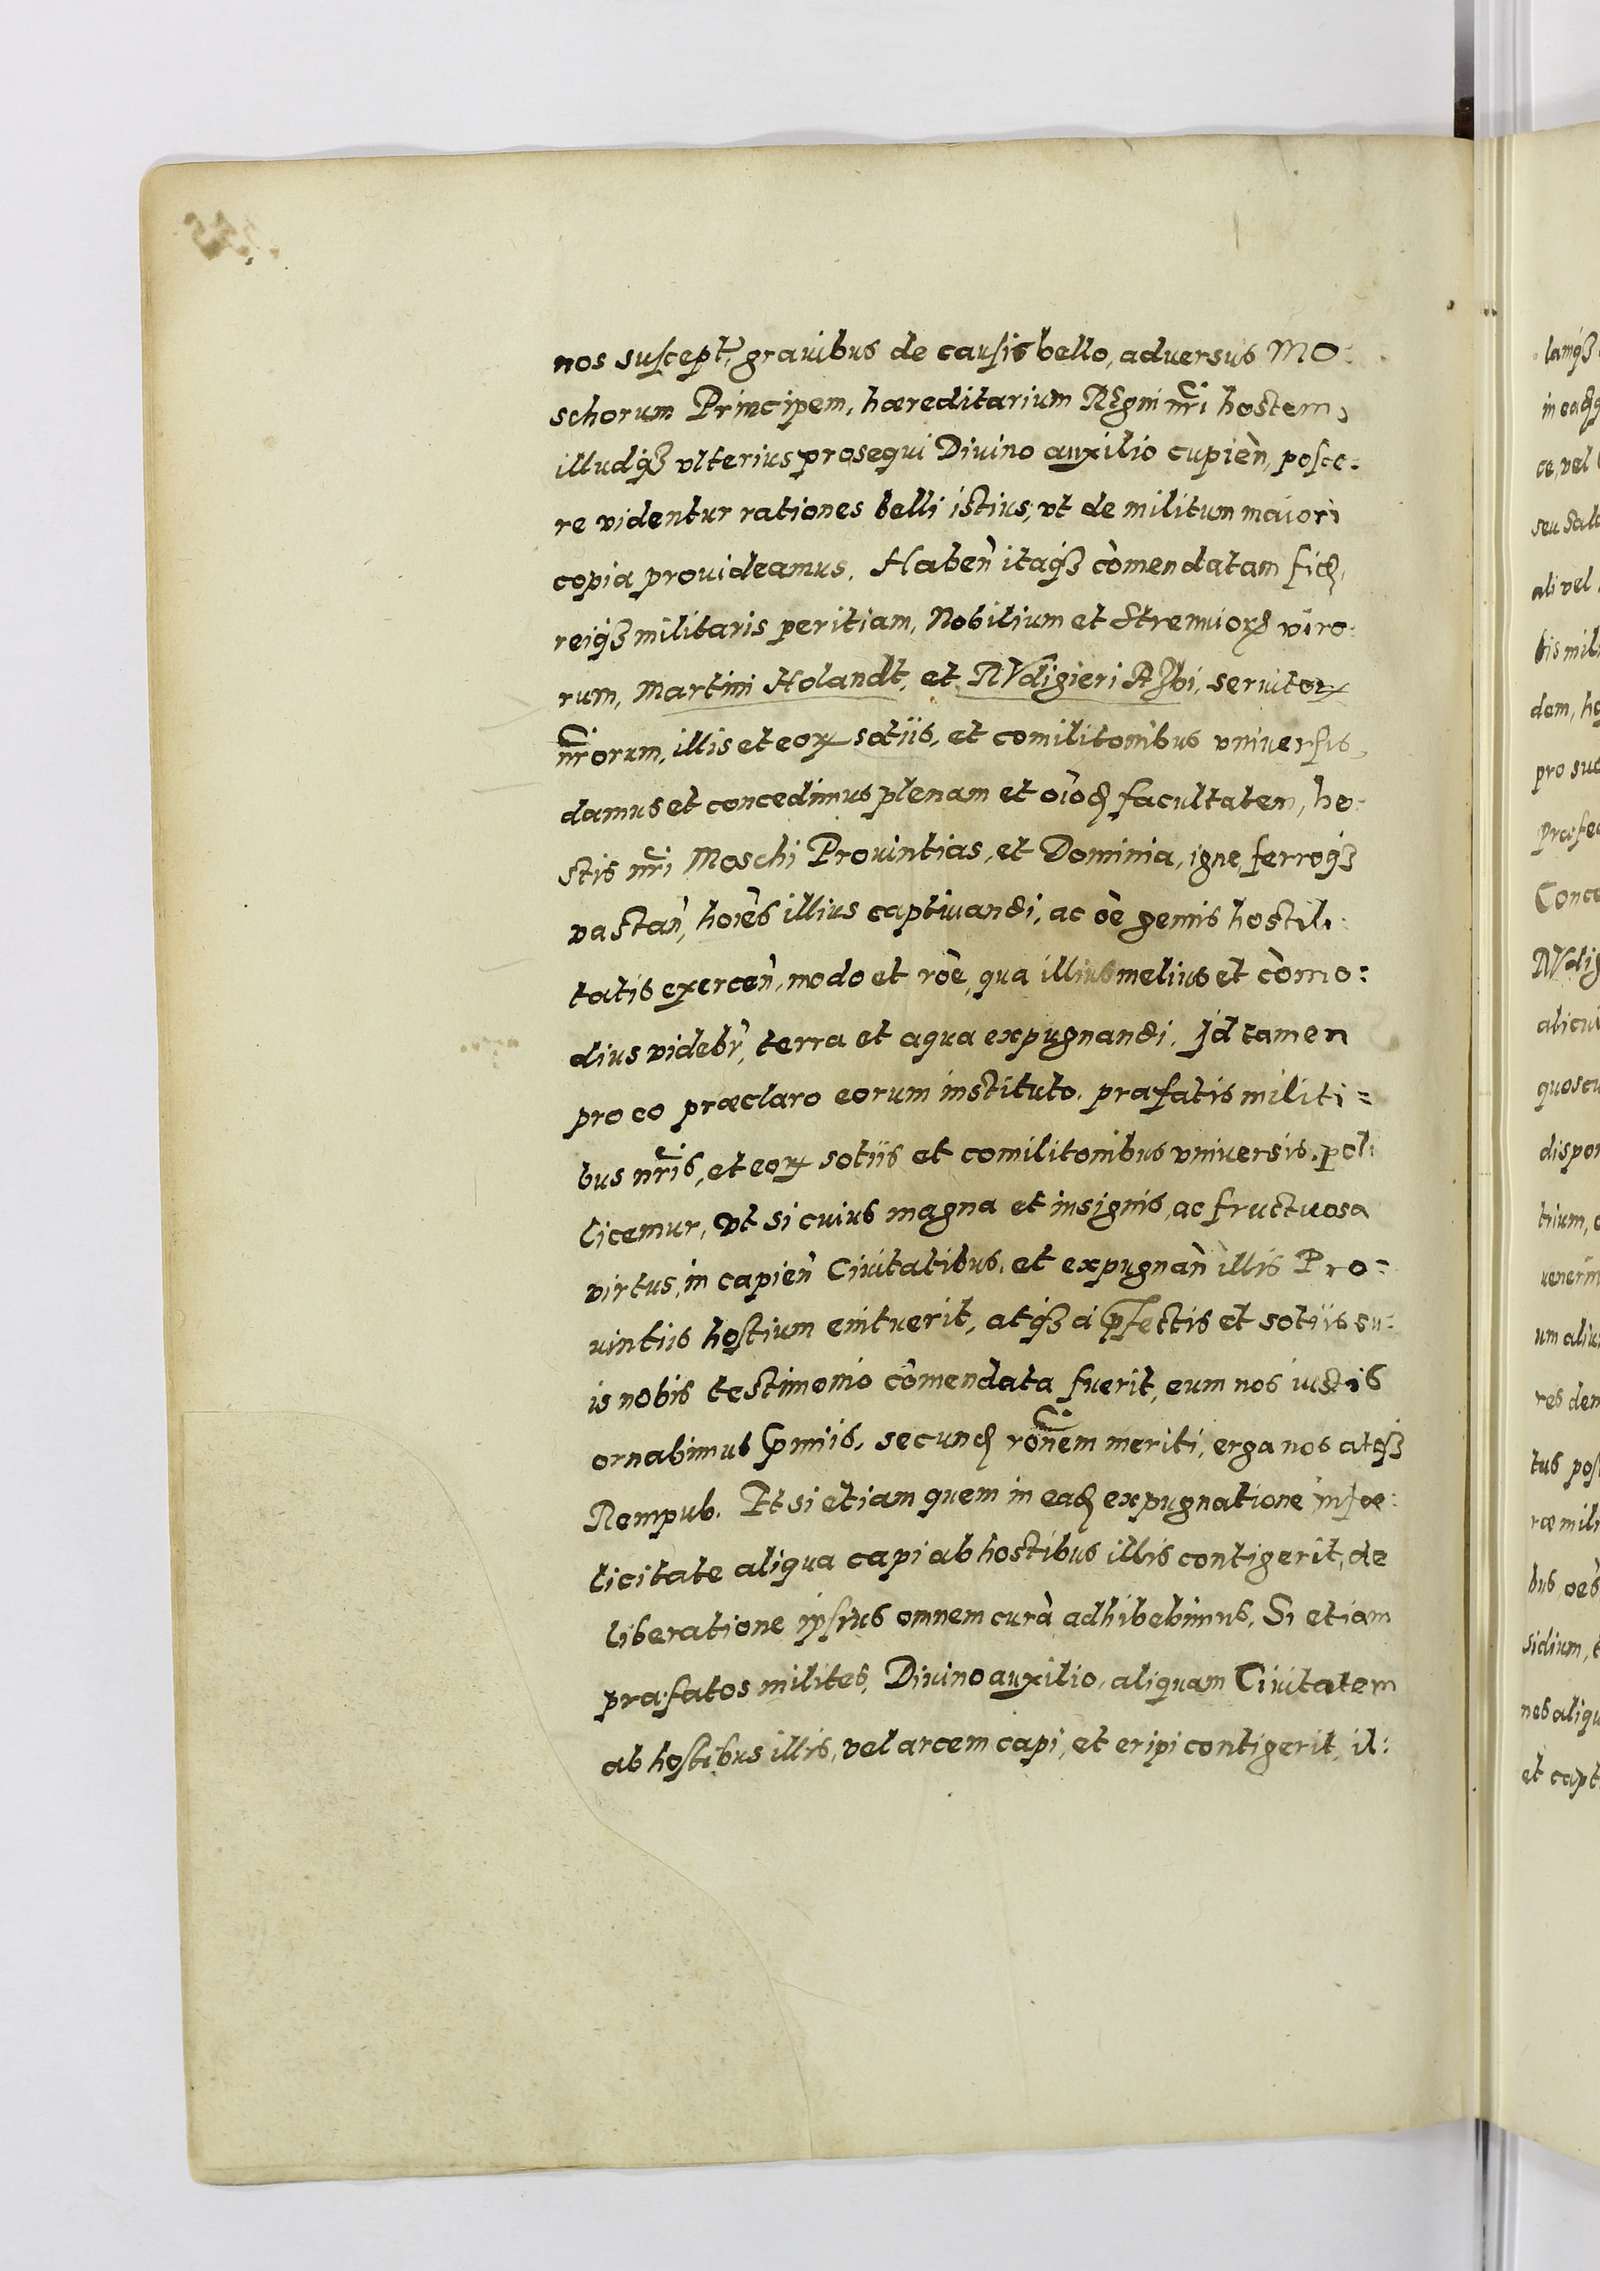 nos suscept, grauibus de causis bello, aduersus Mo:
schorum Principem, hæreditarium Regni nri hostem,
illudq3 vlterius prosequi Diuino auxilio cupien, posce:
re videntur rationes belli istius, vt de militum maiori
copia prouideamus. Haben itaq3 comendatam fid,
reiq3 militaris peritiam, Nobilium et Strenuioꝝ viro:
rum, Martini Holandt, et servitoꝝ
nrorum, illis et eoꝝ sotiis, et comilitonibus vniversis,
damus et concedimus plenam et oiod facultatem, ho:
stis nri Moschi Prouintias, et Dominia, igne, ferroq3
vastan, hoies illius captiuandi, ac oe genus hostili:
tatis exercen, modo et roe, qua illius melius et como:
dius videbr, terra et aqua expugnandi. Id tamen
pro eo præclaro eorum instituto, præfatis militi=
bus nris, et eoꝝ sotiis et comilitonibus vniuersis, pol
licemur, vt si cuius magna et insignis, ac fructuosa
virtus, in capien Ciuitatibus, et expugnan illis Pro=
uintiis hostium enituerit, atq3 a pfectis et sotiis su:
is nobis testimonio comendata fuerit, eum nos iustis
ornabimus pmiis, secund ronem meriti, erga nos atq3
Rempub. Et si etiam quem in ead expugnatione infœ:
licitate aliqua capi ab hostibus illis contigerit, de
liberatione ipsius omnem cura adhibebimus. Si etiam
præfatos milites, Diuino auxilio, aliquam Ciuitatem
ab hostibus illis, vel arcem capi, et eripi contigerit, il:
lamq3
in ead
ce, vel
seu
ali vel
dem,
pro
alicui
trium,
um
tus
bus, oes
sidium,
nes aliqu
et capt